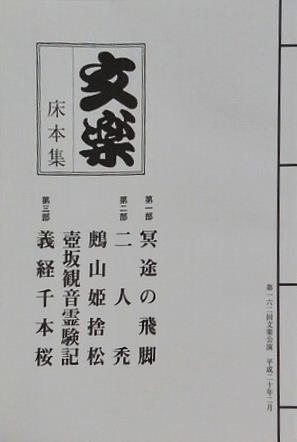 文楽
床本集
第一部
冥途の飛脚
第二部
二人禿
鶊山姫捨松
壺坂観音霊験記
第三部
義経千本桜
第一六二回文楽公演 平成二十年二月